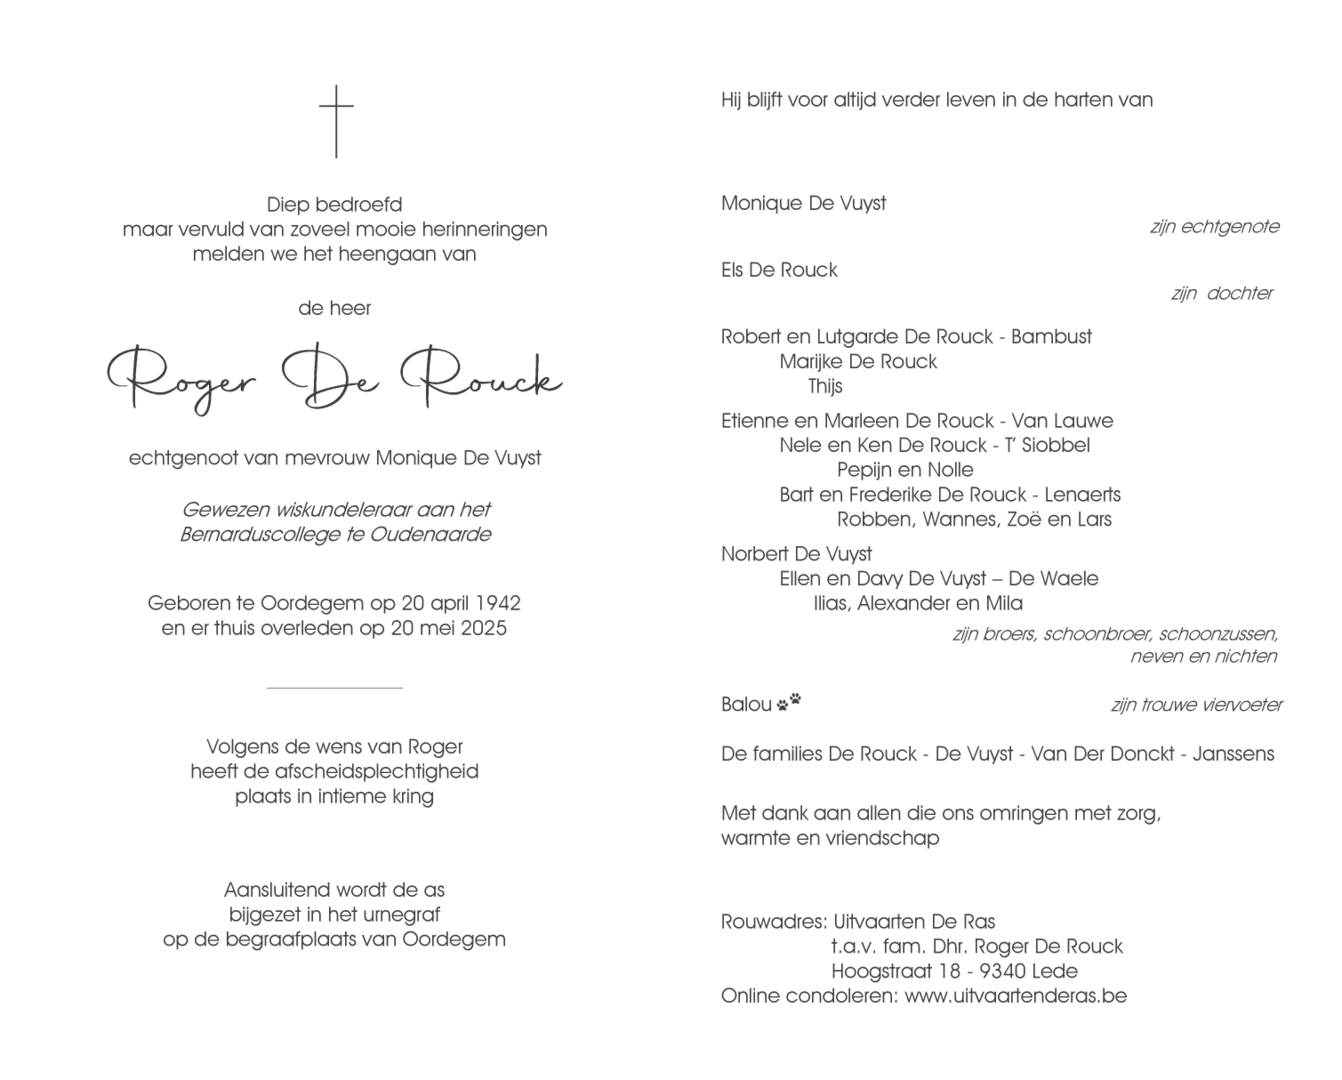 Diep bedroefd
maar vervuld van zoveel mooie herinneringen
melden we het heengaan van
de heer
Roger De Rouck
echtgenoot van mevrouw Monique De Vuyst
Gewezen wiskundeleraar aan het
Bernarduscollege te Oudenaarde
Geboren te Oordegem op 20 april 1942
en er thuis overleden op 20 mei 2025
Volgens de wens van Roger
heeft de afscheidsplechtigheid
plaats in intieme kring
Aansluitend wordt de as
bijgezet in het urnegraf
op de begraafplaats van Oordegem
Hij blijft voor altijd verder leven in de harten van
Monique De Vuyst
zijn echtgenote
Els De Rouck
zijn dochter
Robert en Lutgarde De Rouck - Bambust
Marijke De Rouck
Thijs
Etienne en Marleen De Rouck - Van Lauwe
Nele en Ken De Rouck - T’ Siobbel
Pepijn en Nolle
Bart en Frederike De Rouck - Lenaerts
Robben, Wannes, Zoë en Lars
Norbert De Vuyst
Ellen en Davy De Vuyst – De Waele
Ilias, Alexander en Mila
zijn broers, schoonbroer, schoonzussen,
neven en nichten
Balou zijn trouwe viervoeter
De families De Rouck - De Vuyst - Van Der Donckt - Janssens
Met dank aan allen die ons omringen met zorg,
warmte en vriendschap
Rouwadres: Uitvaarten De Ras
t.a.v. fam. Dhr. Roger De Rouck
Hoogstraat 18 - 9340 Lede
Online condoleren: www.uitvaartenderas.be